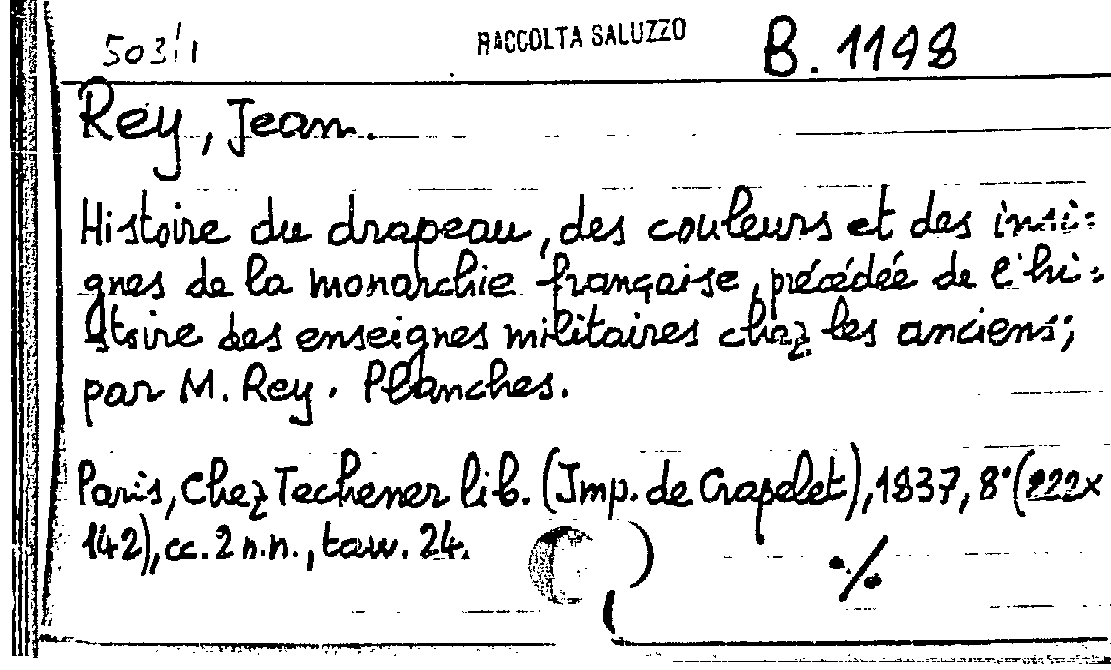 503/1 RACCOLTA SALUZZO B. 1198
Rey, Jean.
Histoire du drapeau, des couleurs et des insi=
gnes de la monarchie française, précédée de l'hi=
stoire des enseignes militaires chez les anciens;
par M. Rey. Planches.
Paris, Chez Techener lib. (Imp. de Crapelet), 1837, 8° (222x
142), cc. 2 n.n., tav. 24.
./.